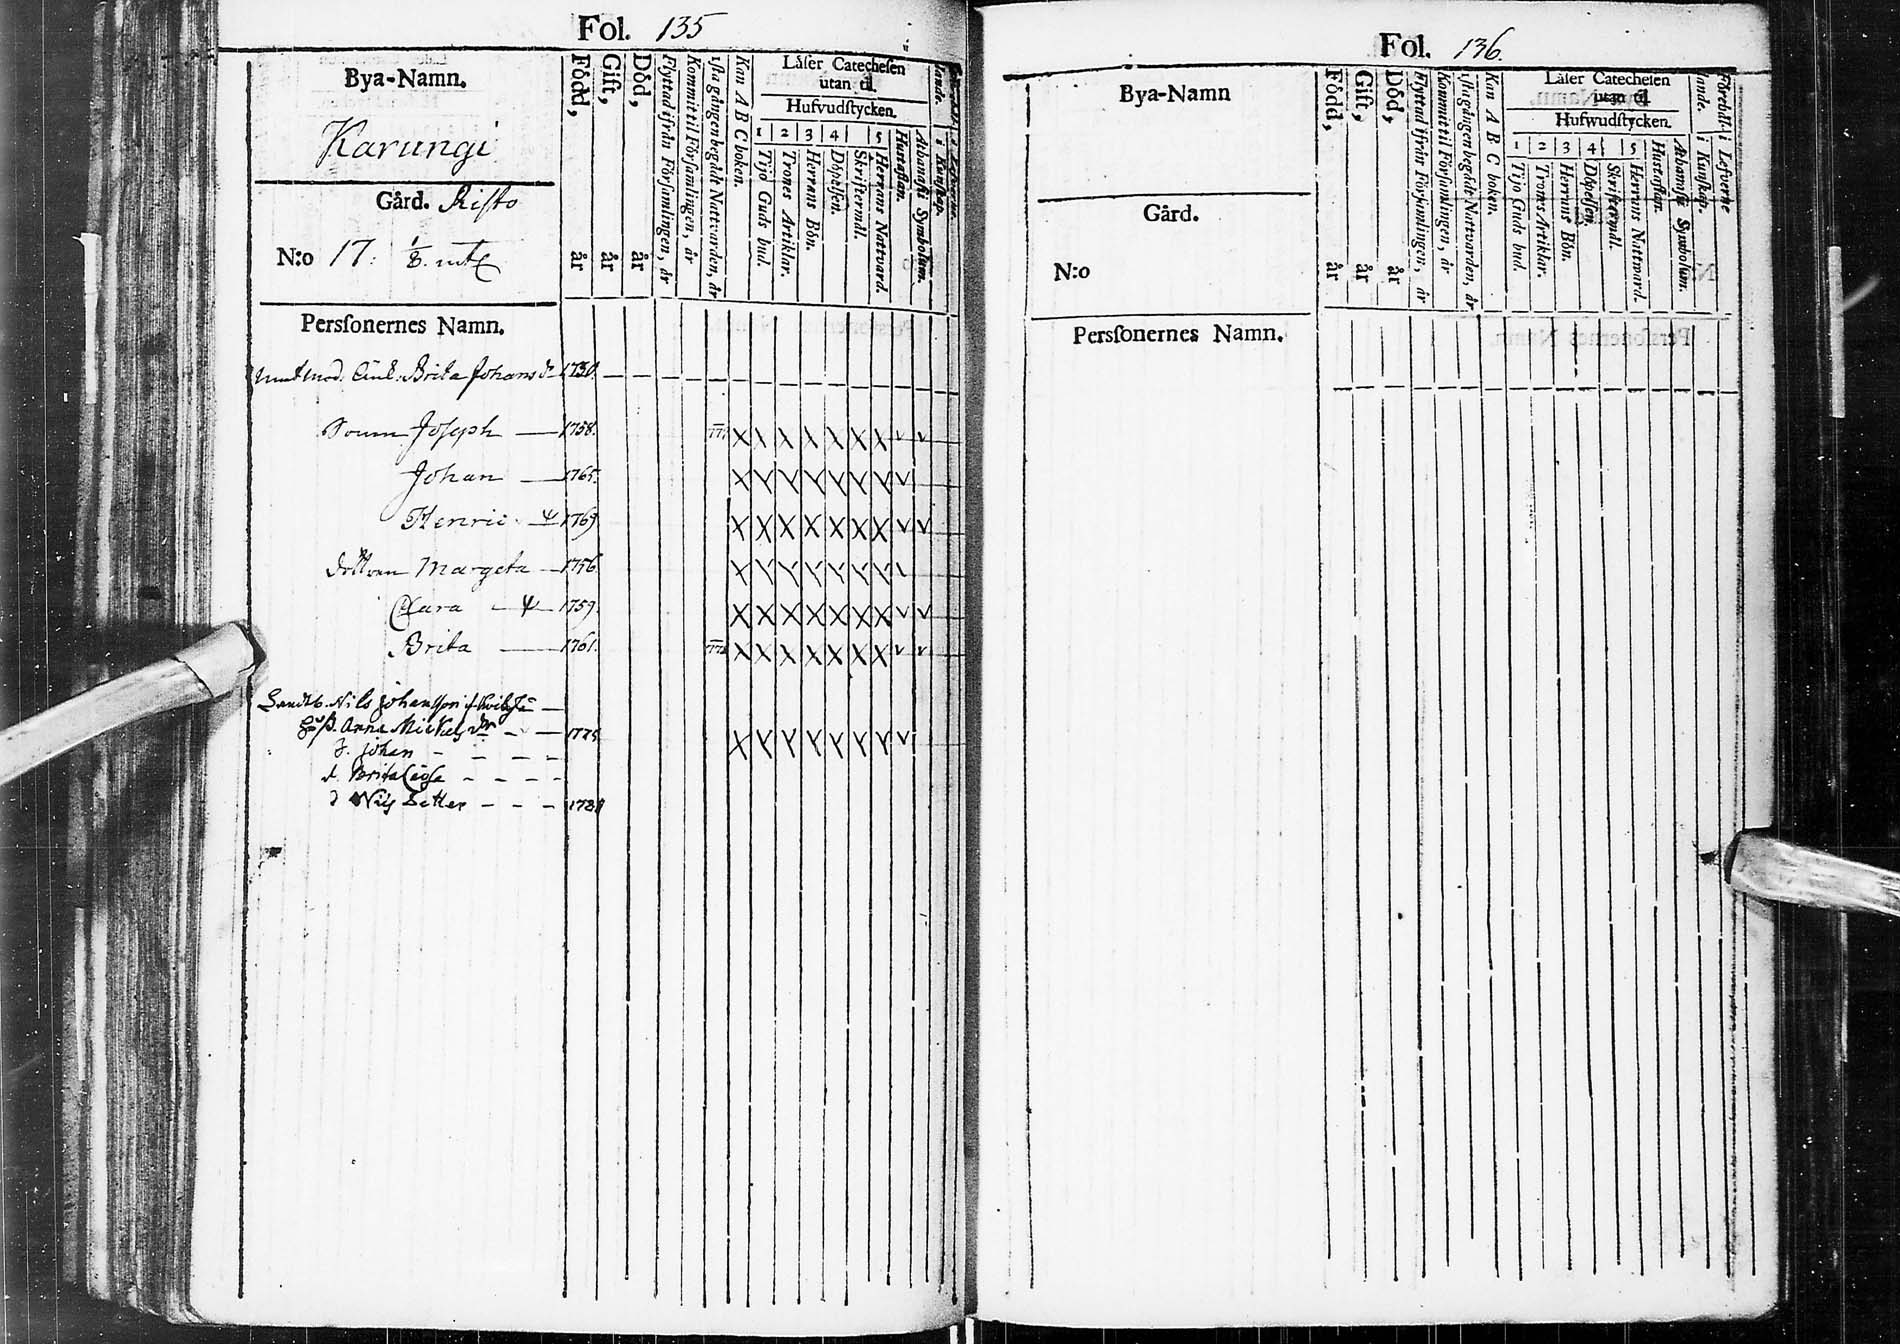 Fol. 135
Bya-Namn.
Karungi
Gård. Risto
N:o 17: 1/8. mtl
Persſonernes Namn.
Född, år
Gift, år
Död, år
Flyttad ifrån Förſamlingen, år
Kommit til Förſamlingen, år
1ſta gången begådt Nattvarden, år
Kan A B C boken.
Låſer Catecheſen
utan til.
Hufvudſtycken.
1 2 3 4 5
Tijo Guds bud.
Trones Artiklar.
Herrans Bön.
Döpelſen.
Skriftermål.
Herrans Nattvard.
Huſtaflan.
Athanaſii Symbolum.
i Kunſkap.
Brita Johans dr 1730.
Sonen Joſeph 1758. 177
Johan 1765.
Henric 1769
dottren Margeta 1756
Clara 1759
Brita 1761. 177
Nils Johansſon
Anna Mickels dr 1775
Johan
d. Brita Caiſa
Nils Petter 178
Fol. 136.
Bya-Namn
Gård.
N:o
Persſonernes Namn.
Född, år
Gift, år
Död, år
Flyttad ifrån Förſamlingen, år
Kommit til Förſamlingen, år
1ſta gången begådt Nattvarden, år
Kan A B C boken.
Låſer Catecheſen
utan til
Hufwudſtycken.
1 2 3 4 5
Tijo Guds bud.
Trones Artiklar.
Herrans Bön.
Döpelſen.
Skriftermål.
Herrans Nattward.
Huſtaflan.
Athanaſii Symbolum.
i Kunſkap.
i Lefverne